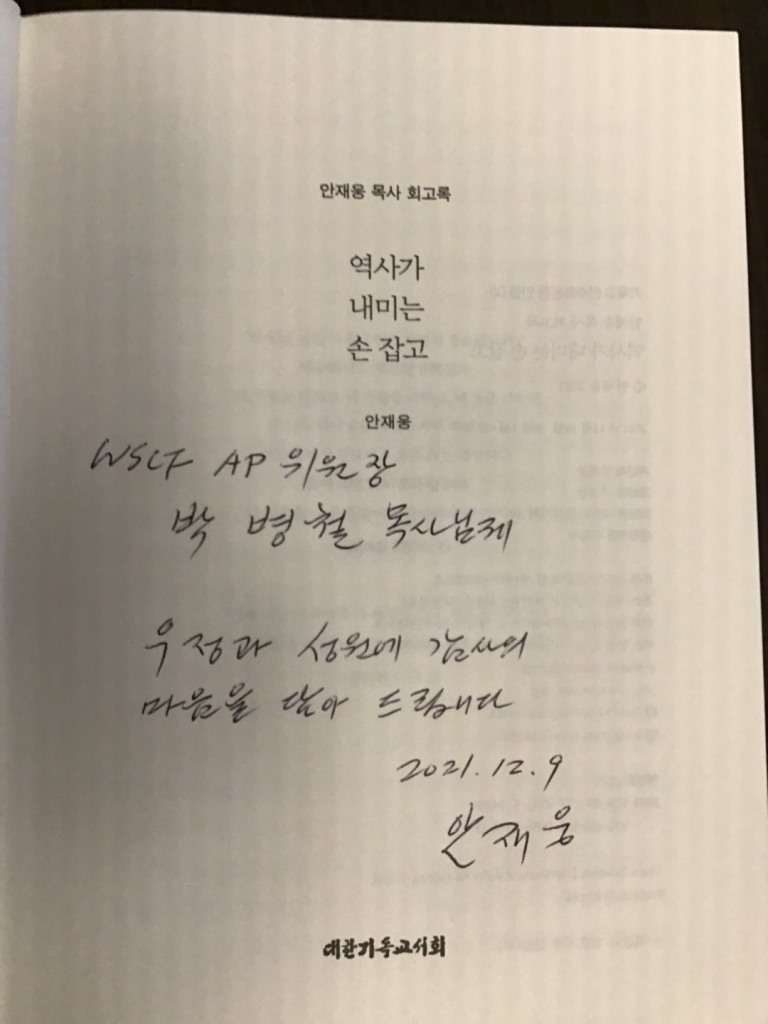 안재웅 목사 회고록
역사가
내미는
손 잡고
안재웅
WSCF AP 위원장
박 병철 목사님께
우정과 성원에 감사의
마음을 담아 드립니다
2021. 12. 9
안재웅
대한기독교서회